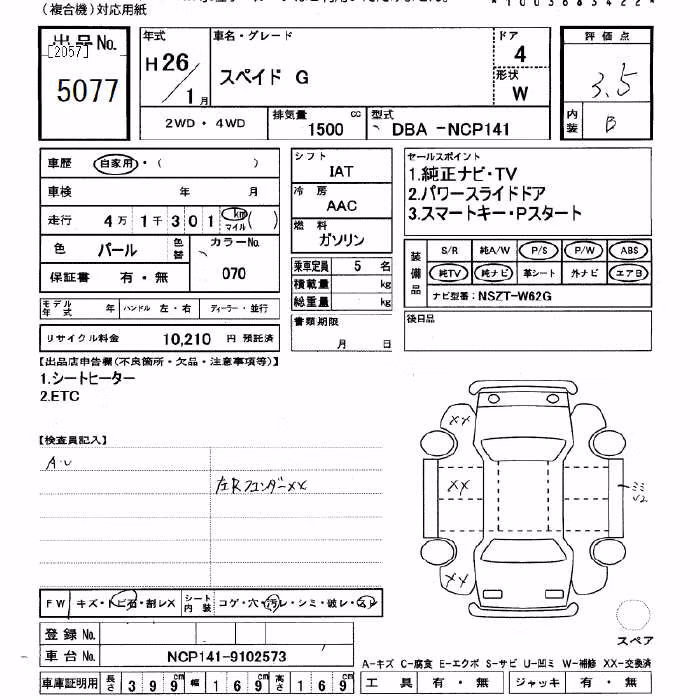 (複合機)対応用紙
出品No.
[2057]
5077
年式
H26/1月
車名・グレード
スペイド G
ドア
4
形状
W
評価点
3.5
内装
B
2WD・4WD
排気量
1500 cc
型式
DBA -NCP141
車歴 自家用・( )
車検 年 月
走行 4万 1千 3 0 1 km マイル ( )
色 パール 色替 カラーNo.
070
保証書 有・無
モデル年式 年 ハンドル 左・右 ディーラー・並行
リサイクル料金 10,210 円 預託済
シフト
IAT
冷房
AAC
燃料
ガソリン
乗車定員 5 名
積載量 kg
総重量 kg
書類期限
月 日
セールスポイント
1.純正ナビ・TV
2.パワースライドドア
3.スマートキー・Pスタート
装備品
S/R 純A/W P/S P/W ABS
純TV 純ナビ 革シート 外ナビ エアB
ナビ型番: NSZT-W62G
後日品
【出品店申告欄(不良箇所・欠品・注意事項等)】
1.シートヒーター
2.ETC
【検査員記入】
A・U
左Rフェンダーxx
xx
xx
xx
FW キズ・トビ石・割レX シート内装 コゲ・穴・汚レ・シミ・破レ・スレ
登録No.
車台No. NCP141-9102573
車庫証明用 長さ 3 9 9 cm 幅 1 6 9 cm 高さ 1 6 9 cm
スペア
A-キズ C-腐食 E-エクボ S-サビ U-凹ミ W-補修 XX-交換済
工具 有・無 ジャッキ 有・無